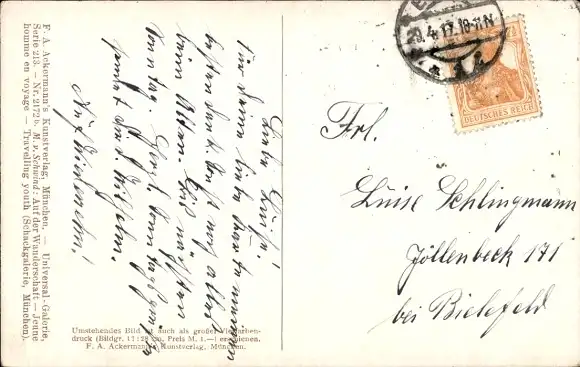 F. A. Ackermann's Kunstverlag, München. — Universal-Galerie,
Serie 213. — Nr. 2172b. M. v. Schwind: Auf der Wanderschaft — Jeune
homme en voyage — Travelling youth (Schackgalerie, München).
Liebe Luise!
Für deine liebe Karte meinen
besten Dank. Bei uns alles
beim Alten.
Sonntag. Herzl.
sendet Wilhelm.
Auf Wiedersehn!
Umstehendes Bild ist auch als großer Vierfarben-
druck (Bildgr. cm, Preis M. 1.—) erschienen.
F. A. Ackermann's Kunstverlag, München.
29.4.17.
DEUTSCHES REICH
Frl.
Luise Schlingmann
Jöllenbeck 171
bei Bielefeld